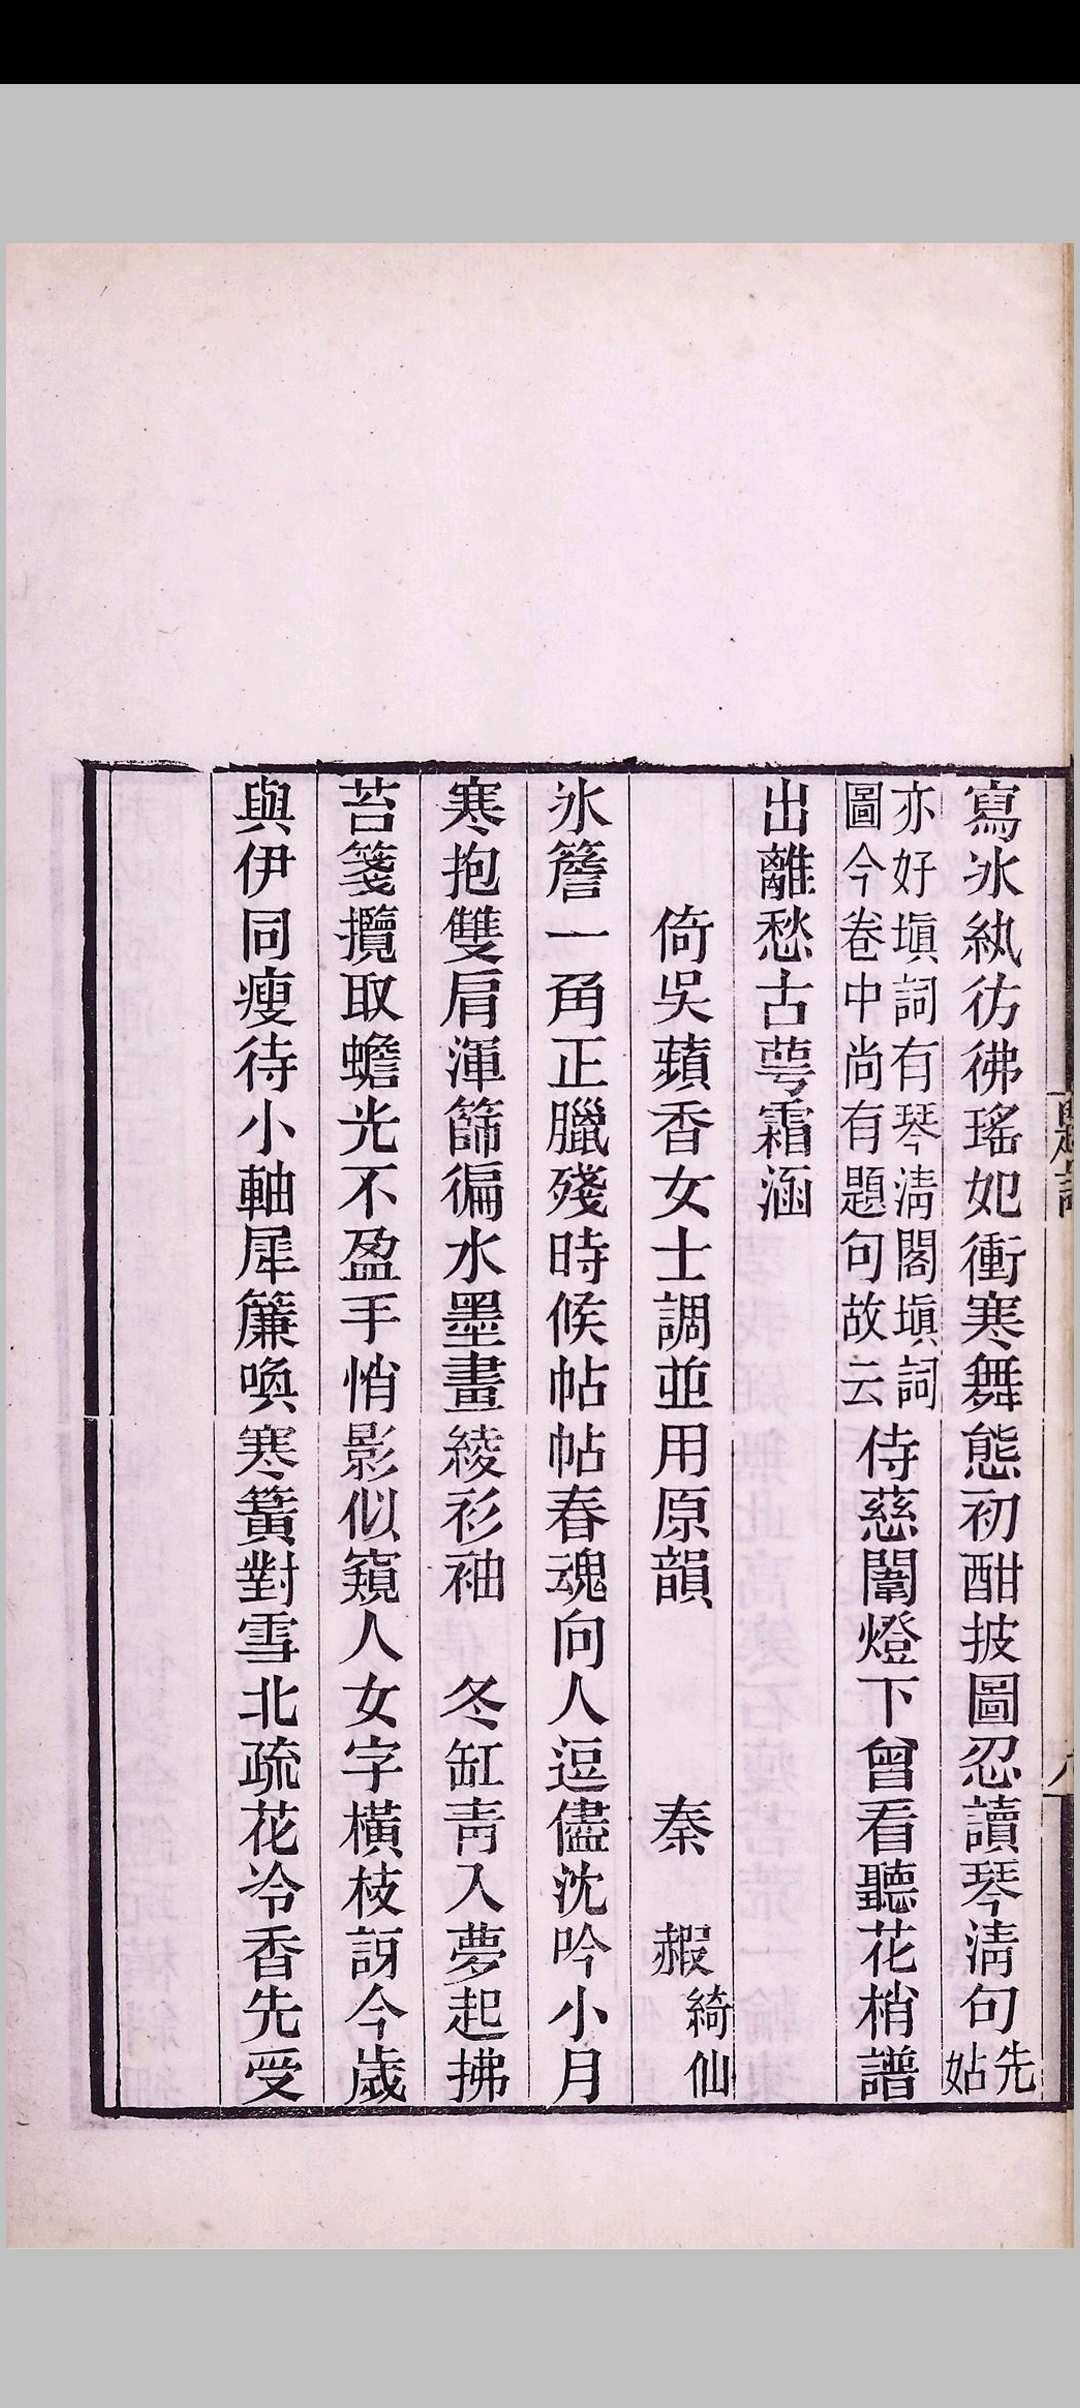 寫冰紈彷彿瑤妃衝寒舞態初酣披圖忍讀琴淸句先姑
亦好塡詞有琴淸閣塡詞
圖今卷中尚有題句故云
侍慈闈燈下曾看聽花梢譜
出離愁古萼霜涵
倚吳蘋香女士調並用原韻 秦 赮 綺仙
冰簷一角正臘殘時候帖帖春魂向人逗儘沈吟小月
寒抱雙肩渾篩徧水墨畫綾衫袖 冬缸靑入夢起拂
苔箋攬取蟾光不盈手悄影似窺人女字橫枝訝今歲
與伊同瘦待小軸犀簾喚寒簧對雪北疏花冷香先受